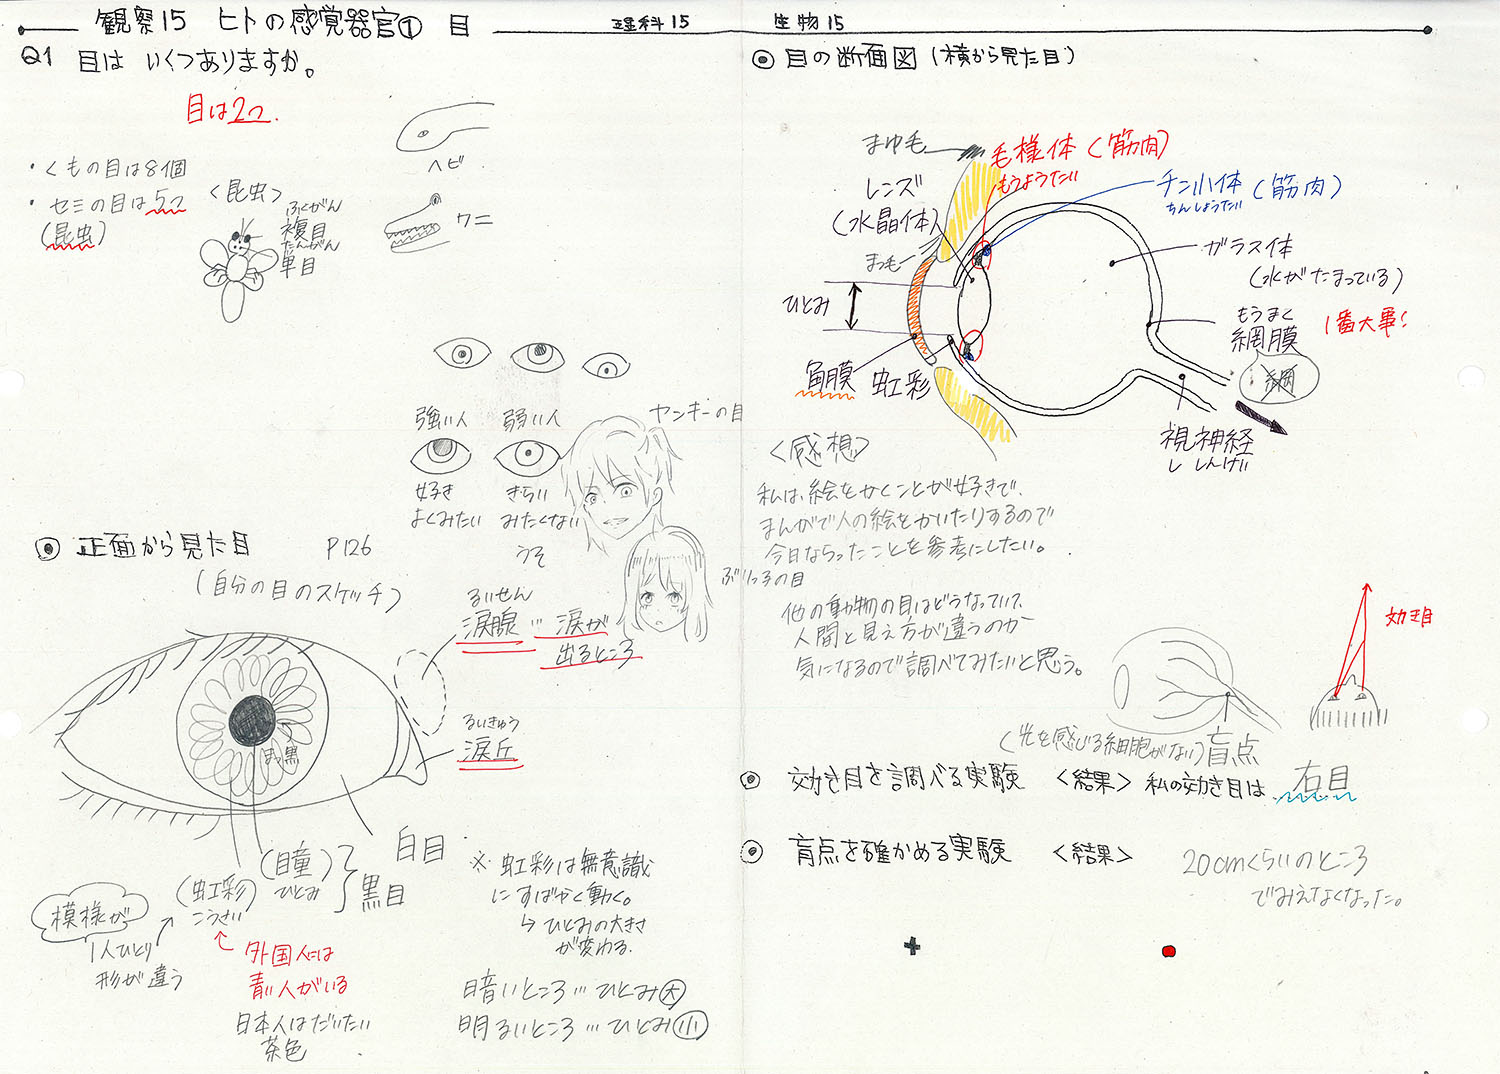 観察15 ヒトの感覚器官① 目
理科15
生物15
Q1 目は いくつありますか。
目は2つ
・くもの目は8個
・セミの目は5つ
(昆虫)
<昆虫>
ふくがん
複目
たんがん
単目
ヘビ
ワニ
強い人
弱い人
好き
よくみたい
きらい
みたくない
うそ
ヤンキーの目
ぶりっ子の目
◎ 正面から見た目 P126
(自分の目のスケッチ)
るいせん
涙腺…涙が
出るところ
るいきゅう
涙丘
黒
白目
(瞳)
ひとみ
(虹彩)
こうさい
黒目
模様が
1人ひとり
形が違う
外国人には
青い人がいる
日本人はだいたい
茶色
※ 虹彩は無意識
にすばやく動く。
↳ ひとみの大きさ
が変わる.
暗いところ…ひとみ大
明るいところ…ひとみ小
◎ 目の断面図(横から見た目)
まゆ毛
毛様体(筋肉)
もうようたい
チン小体(筋肉)
ちんしょうたい
レンズ
(水晶体)
まつ毛
ひとみ
角膜
虹彩
ガラス体
(水がたまっている)
もうまく
網膜
1番大事!
視神経
ししんけい
<感想>
私は、絵をかくことが好きで、
まんがで人の絵をかいたりするので
今日ならったことを参考にしたい。
他の動物の目はどうなっていて、
人間と見え方が違うのか
気になるので調べてみたいと思う。
効き目
(光を感じる細胞がない)盲点
◎ 効き目を調べる実験 <結果> 私の効き目は 右目
◎ 盲点を確かめる実験 <結果> 20cmくらいのところ
でみえなくなった。